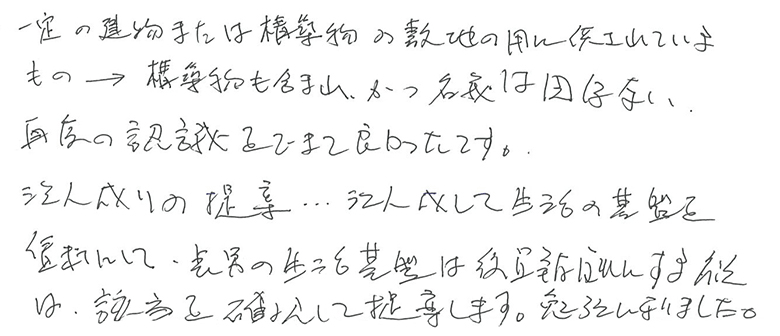 一定の建物または構築物の敷地の用に供されているもの → 構築物も含まれ、かつ名義は関係ない、
再度の認識をできて良かったです。
法人成りの提案…法人成して生活の基盤を
優先にして、長男の生活基盤は
は、該当を確認して提案します。勉強になりました。